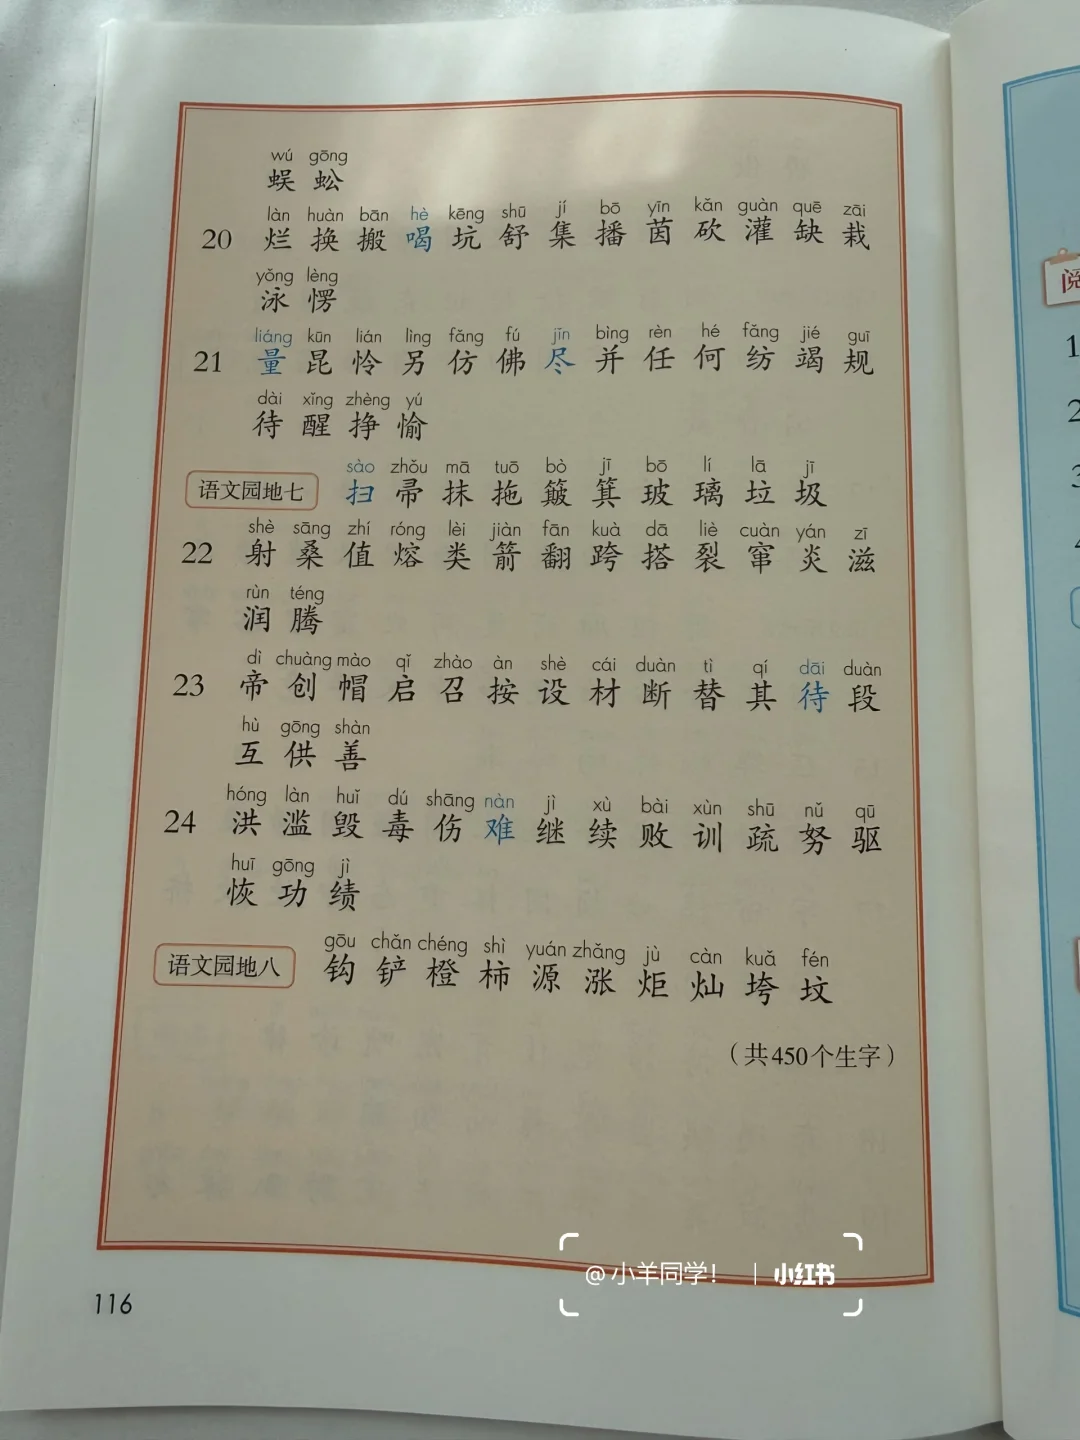 wú gōng
蜈 蚣
làn huàn bān hè kēng shū jí bō yīn kǎn guàn quē zāi
20 烂 换 搬 喝 坑 舒 集 播 茵 砍 灌 缺 栽
yǒng lèng
泳 愣
liáng kūn lián lìng fǎng fú jǐn bìng rèn hé fǎng jié guī
21 量 昆 怜 另 仿 佛 尽 并 任 何 纺 竭 规
dài xǐng zhèng yú
待 醒 挣 愉
sào zhǒu mā tuō bò jī bō lí lā jī
语文园地七 扫 帚 抹 拖 簸 箕 玻 璃 垃 圾
shè sāng zhí róng lèi jiàn fān kuà dā liè cuàn yán zī
22 射 桑 值 熔 类 箭 翻 跨 搭 裂 窜 炎 滋
rùn téng
润 腾
dì chuàng mào qǐ zhào àn shè cái duàn tì qí dāi duàn
23 帝 创 帽 启 召 按 设 材 断 替 其 待 段
hù gōng shàn
互 供 善
hóng làn huǐ dú shāng nàn jì xù bài xùn shū nǔ qū
24 洪 滥 毁 毒 伤 难 继 续 败 训 疏 努 驱
huī gōng jì
恢 功 绩
gōu chǎn chéng shì yuán zhǎng jù càn kuǎ fén
语文园地八 钩 铲 橙 柿 源 涨 炬 灿 垮 坟
（共450个生字）
@小羊同学！ | 小红书
116
阅
1
2
3
4